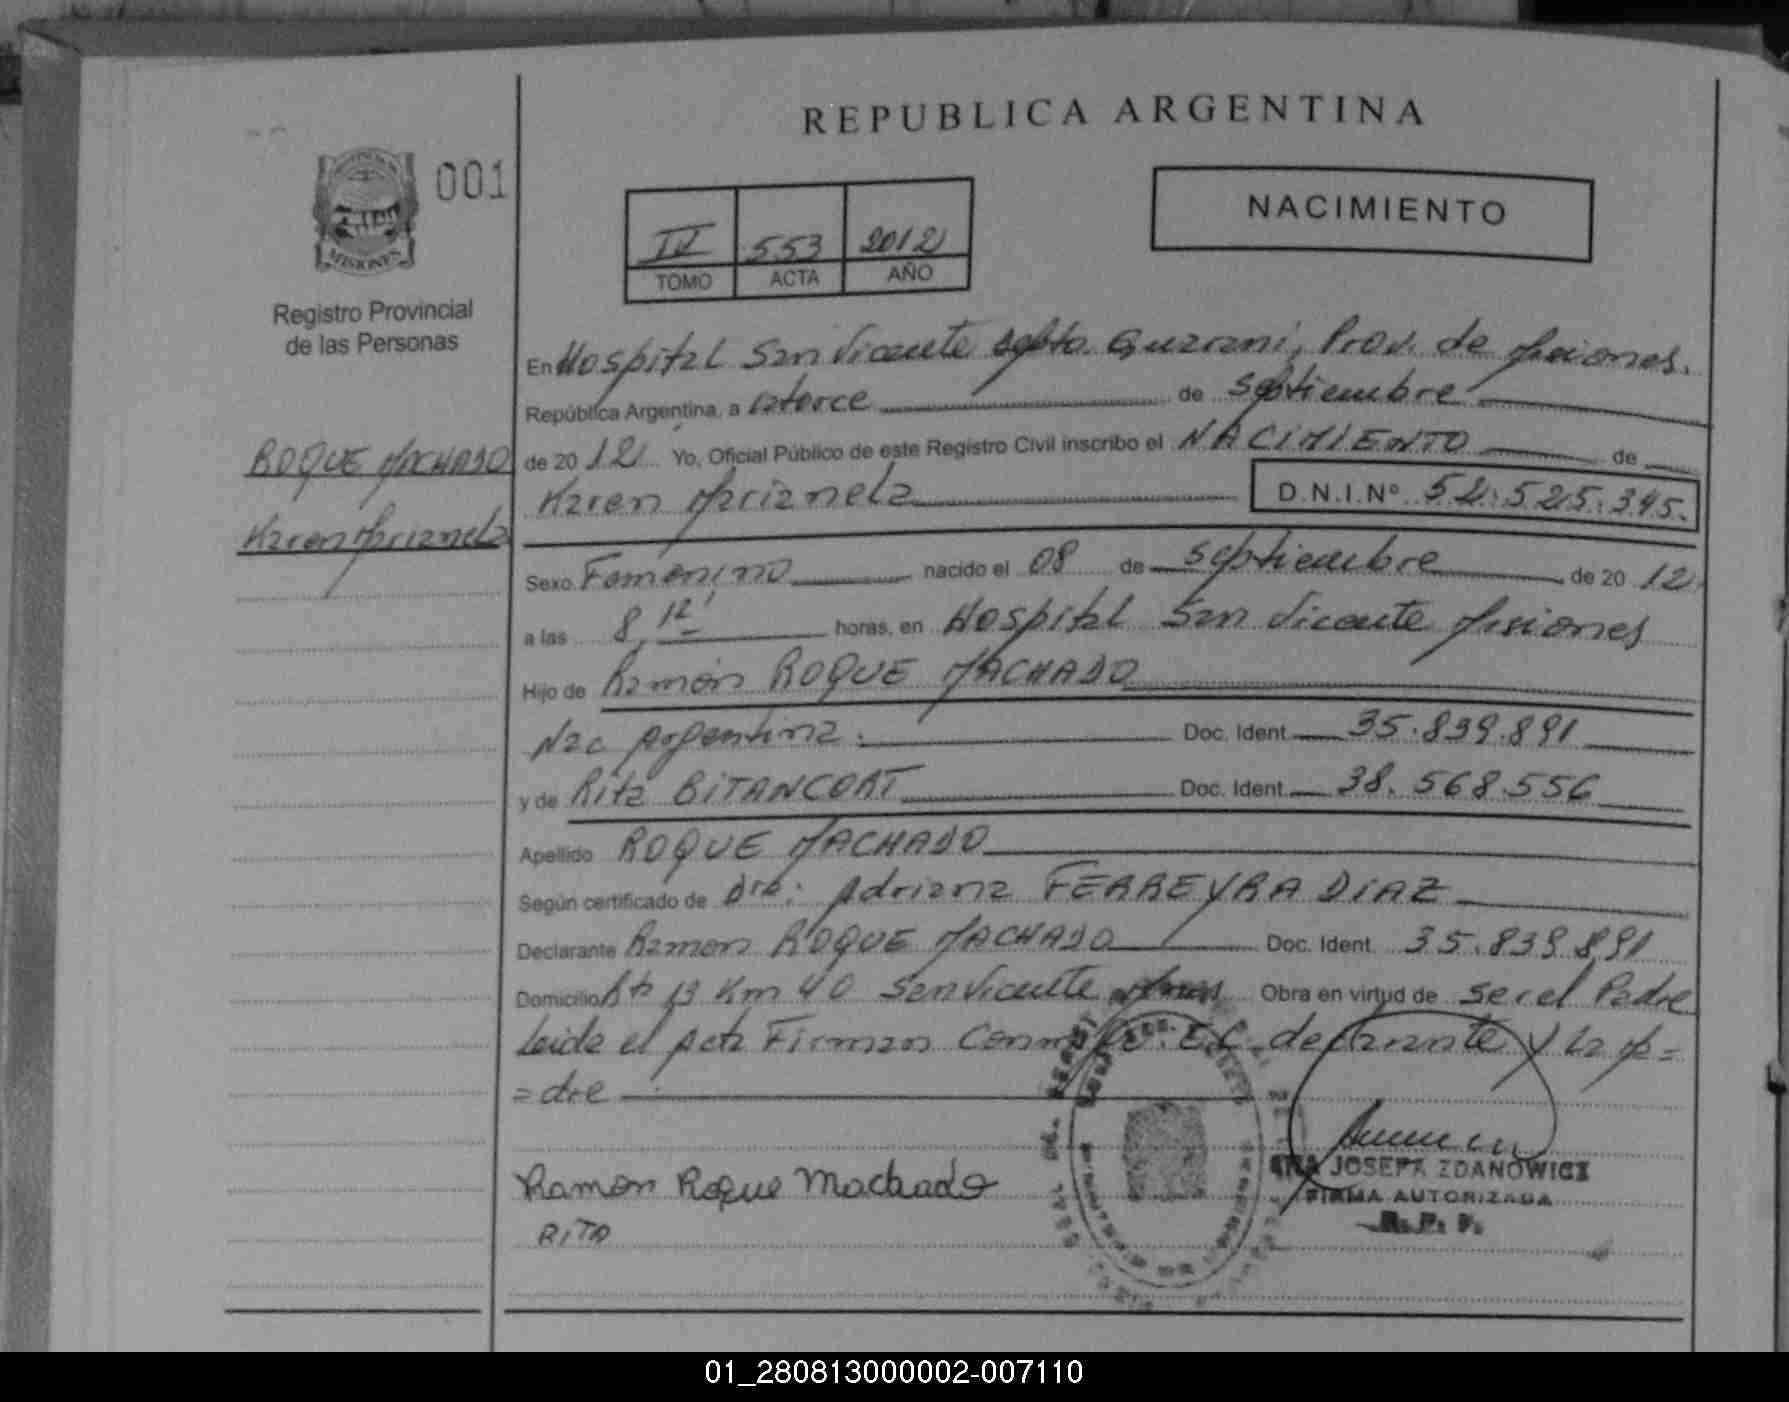 REPUBLICA ARGENTINA
001
MISIONES
Registro Provincial
de las Personas
IV 553 2012
TOMO ACTA AÑO
NACIMIENTO
ROQUE MACHADO
Karen Marianela
En Hospital San Vicente Dpto. Guarani, Prov. de Misiones.
República Argentina, a catorce de Septiembre
de 20 12 Yo, Oficial Público de este Registro Civil inscribo el NACIMIENTO de
Karen Marianela D.N.I.Nº 52.525.345.
Sexo Femenino nacido el 08 de Septiembre de 20 12
a las 8,12' horas, en Hospital San Vicente Misiones
Hijo de Ramón ROQUE MACHADO
Nac Argentina. Doc. Ident 35.839.891
y de Rita BITANCORT Doc. Ident 38.568.556
Apellido ROQUE MACHADO
Según certificado de Dra: Adriana FERREYRA DIAZ
Declarante Ramon ROQUE MACHADO Doc. Ident. 35.839.891
Domicilio Km 40 San Vicente Obra en virtud de ser el Padre
Leida el Acta Firman el declarante y la Ma=
=dre
Ramon Roque Machado
RITA
ANA JOSEFA ZDANOWICZ
FIRMA AUTORIZADA
R. P. P.
01_280813000002-007110